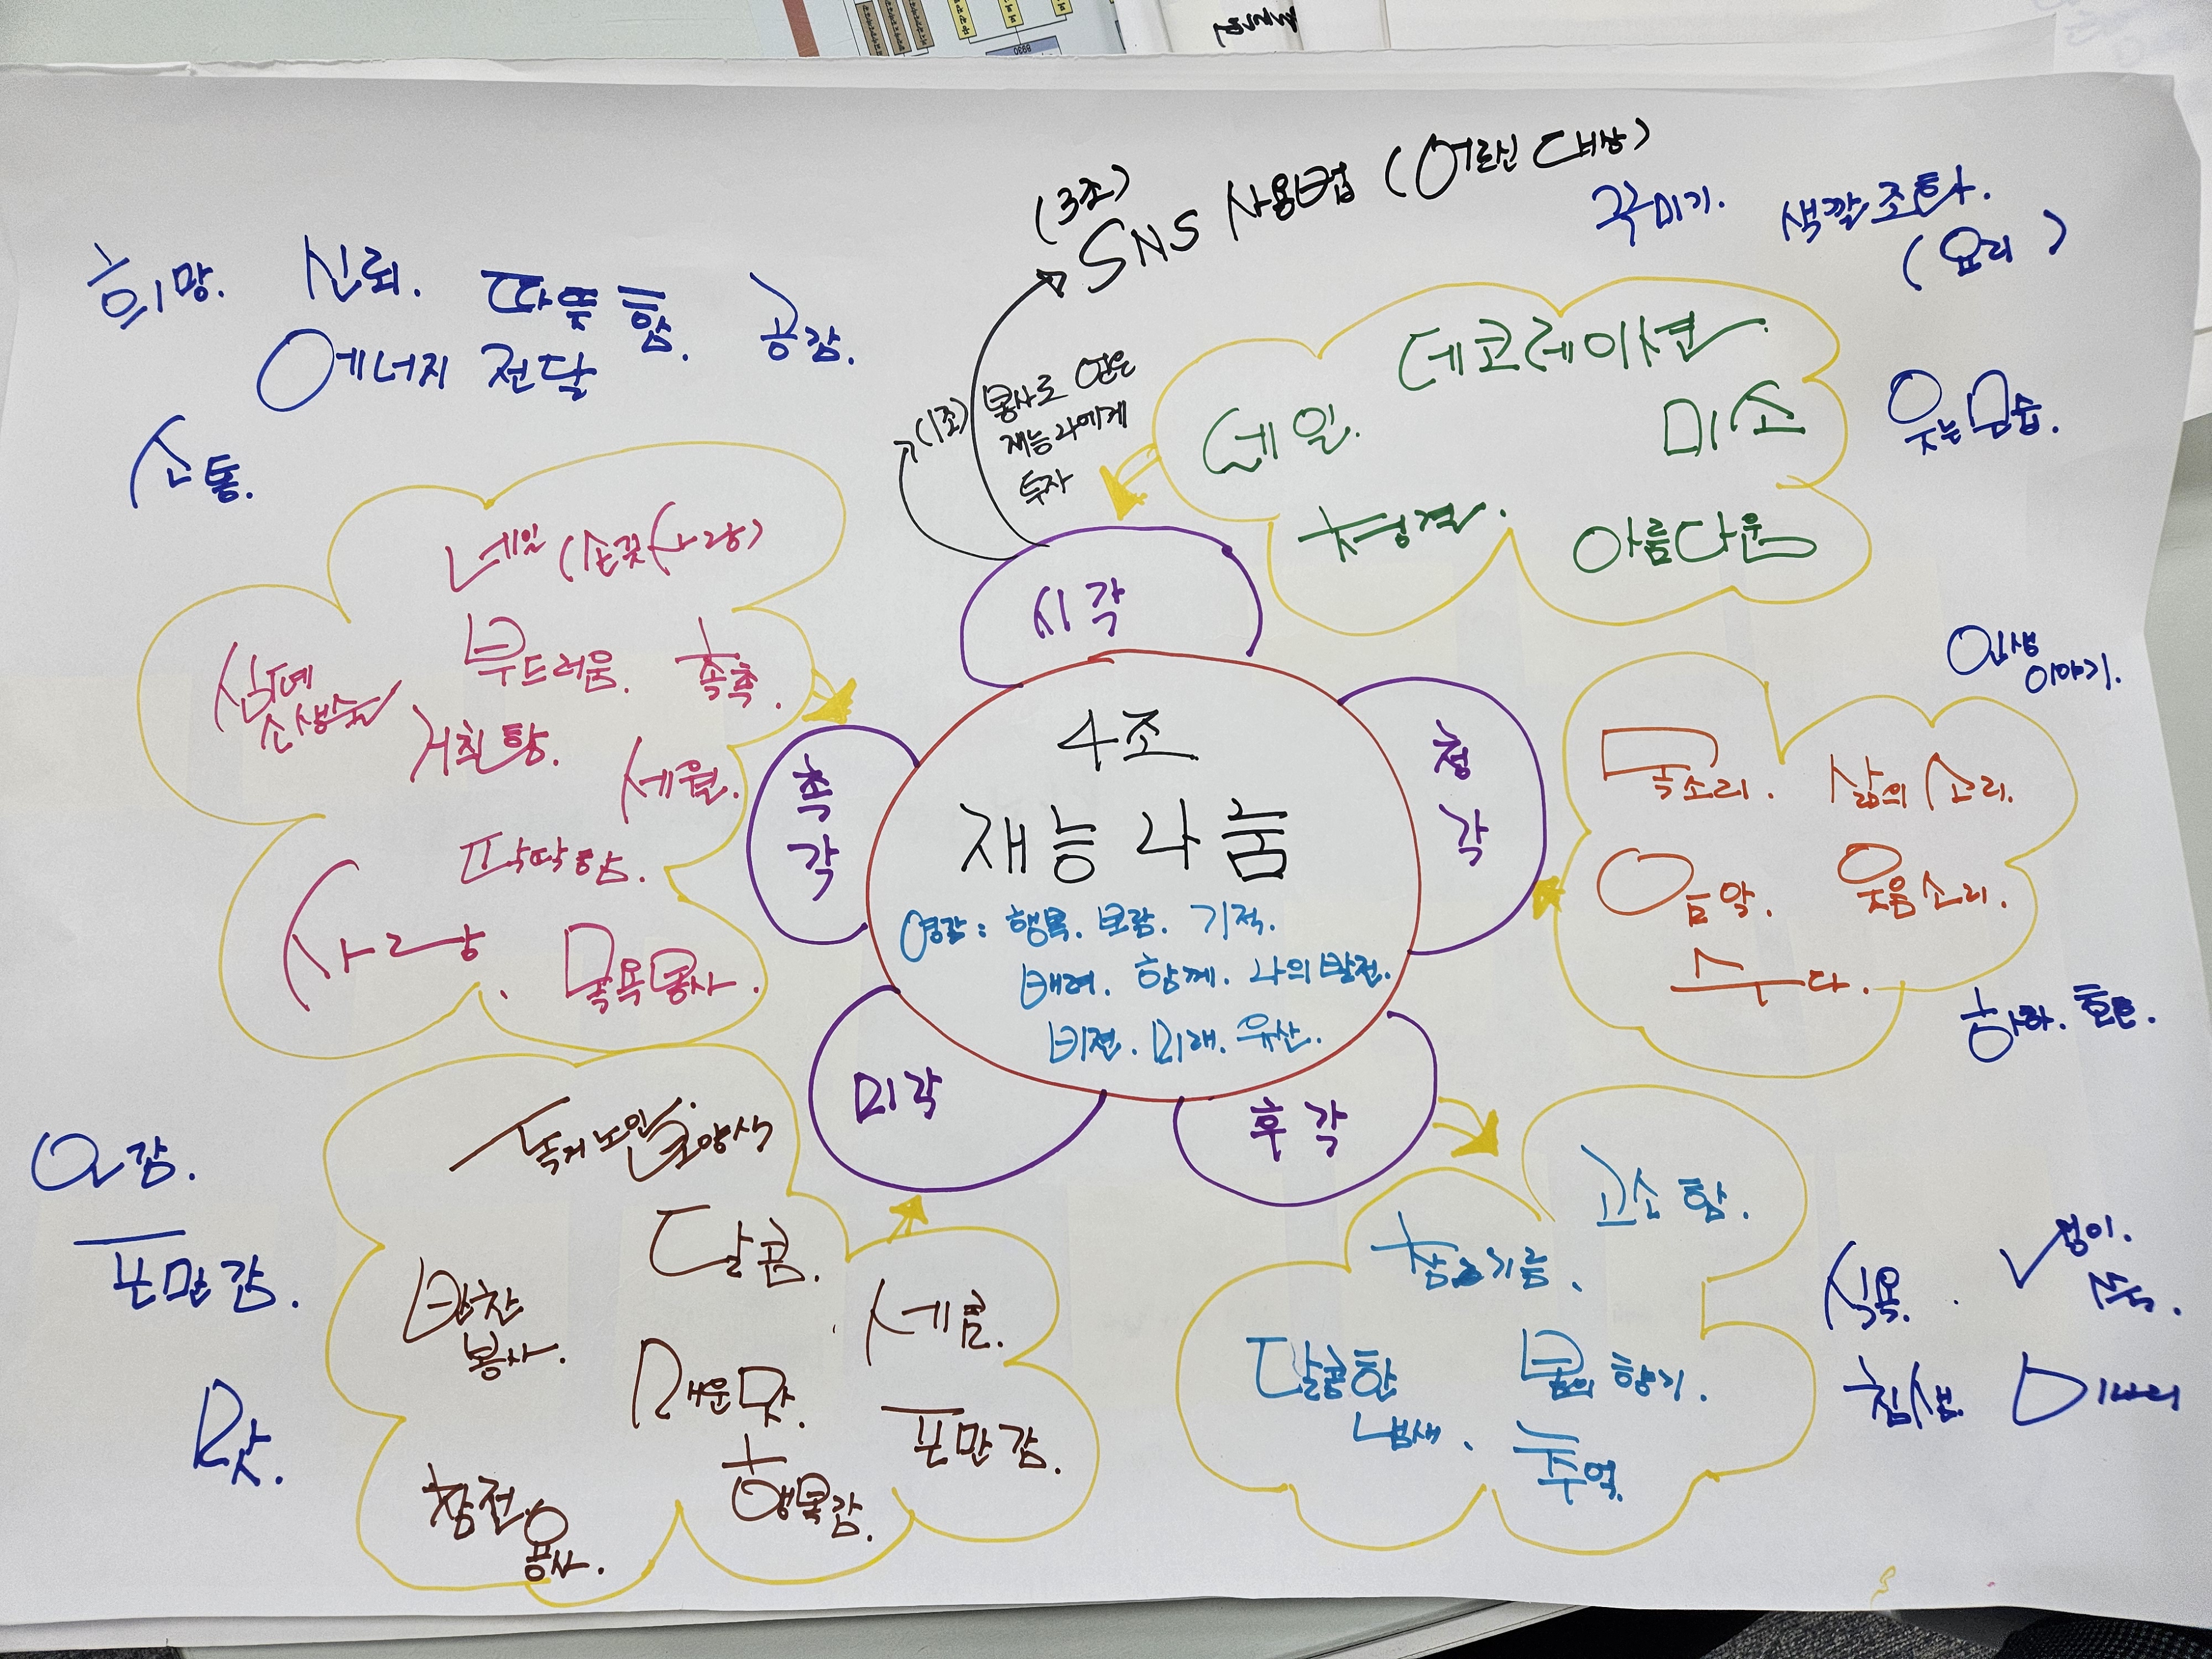 (3조)
SNS 사용법 (어르신 대상)
꾸미기.
색깔조화.
(요리)
희망. 신뢰. 따뜻함. 공감.
에너지 전달
소통.
(1조) 봉사로 얻은
재능 나에게
투자
데코레이션
네일.
미소
청결.
아름다운
웃는 모습.
네일 (손꽃사랑)
부드러움. 촉촉.
심폐
소생술
거칠함.
세월.
딱딱함.
사랑.
목욕봉사.
시각
촉각
청각
미각
후각
4조
재능나눔
영감: 행복. 보람. 기적.
배려. 함께. 나의발전.
비전. 미래. 유산.
인생
이야기.
목소리.
삶의 소리.
음악.
웃음소리.
수다.
하하. 호호.
오감.
포만감.
맛.
독거노인 영양식
달콤.
반찬
봉사.
새콤.
매운맛.
포만감.
행복감.
참전용
용사.
고소함.
참기름.
달콤한
냄새.
봄의 향기.
추억.
식욕.
침샘.